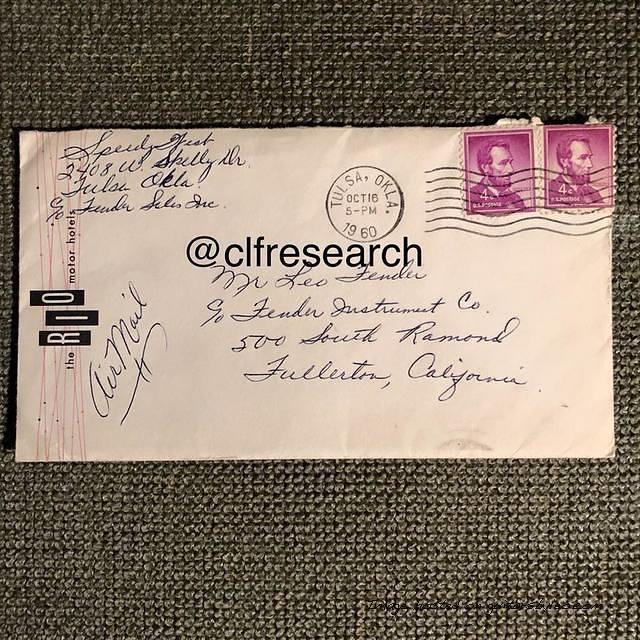 Speedy West
2408 W. Skelly Dr.
Tulsa Okla.
c/o Fender Sales Inc.
the RIO motor hotels
Air Mail
TULSA, OKLA.
OCT 16
5-PM
1960
4¢
U.S. POSTAGE
4¢
U.S. POSTAGE
@clfresearch
Mr Leo Fender
c/o Fender Instrument Co.
500 South Ramond
Fullerton, California